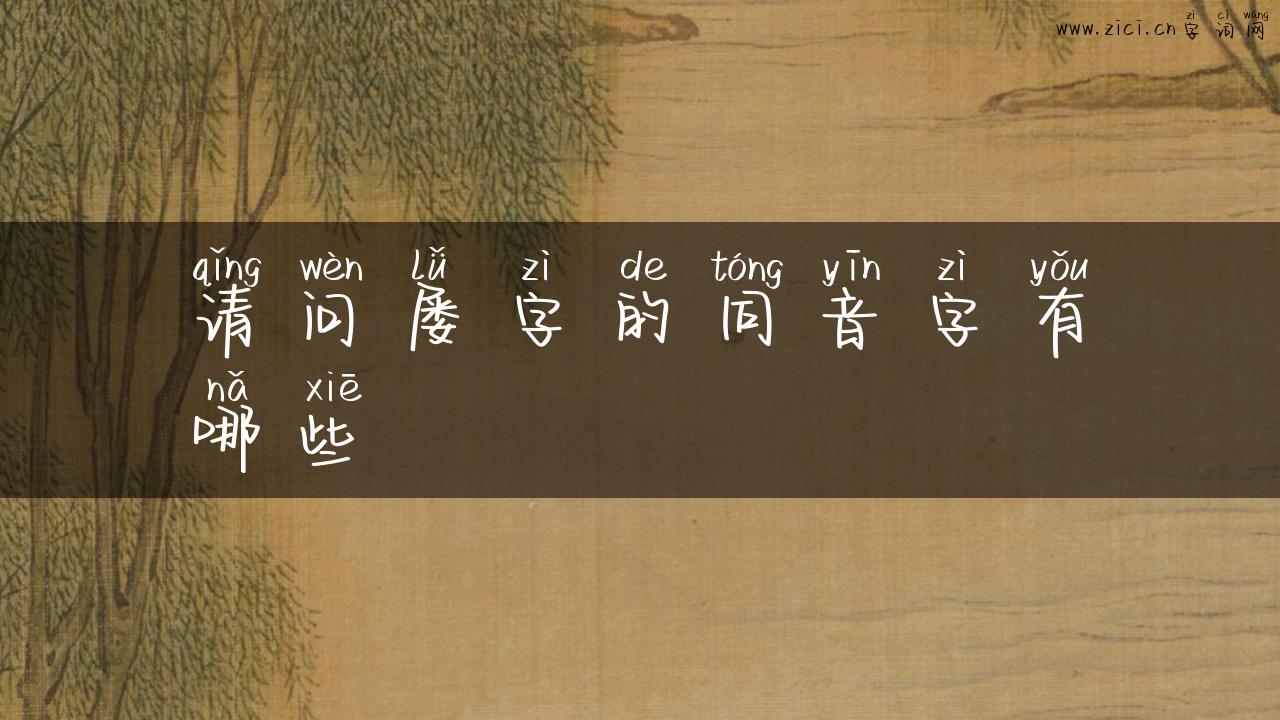 zì cí wǎng
www.zici.cn 字词网
qǐng wèn lǚ zì de tóng yīn zì yǒu
请问屡字的同音字有
nǎ xiē
哪些